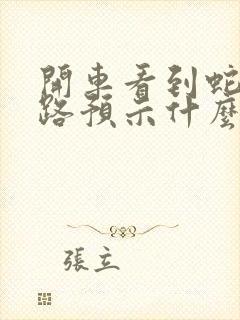 開車看到蛇
路預示什麼
張立